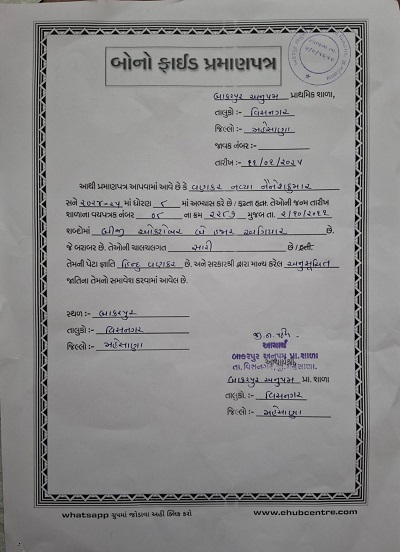 બોનો ફાઈડ પ્રમાણપત્ર
બાકરપુર અનુપમ પ્રાથમિક શાળા,
તાલુકો :- વિસનગર
જિલ્લો :- મહેસાણા
જાવક નંબર :-
તારીખ :- ૧૧/૦૨/૨૦૨૫
આથી પ્રમાણપત્ર આપવામાં આવે છે કે વણકર નવ્યા નૈનેશકુમાર
સને ૨૦૨૪-૨૫ માં ધોરણ ૮ માં અભ્યાસ કરે છે / કરતા હતા. તેઓની જન્મ તારીખ
શાળાના વયપત્રક નંબર ૦૮ ના ક્રમ ૨૨૮૭ મુજબ તા. ૨/૧૦/૨૦૧૧
શબ્દોમાં બીજી ઓક્ટોબર બે હજાર અગિયાર છે.
જે બરાબર છે. તેઓની ચાલચલગત સારી છે / હતી.
તેમની પેટા જ્ઞાતિ હિન્દુ વણકર છે. અને સરકારશ્રી દ્વારા માન્ય કરેલ અનુસૂચિત
જાતિના તેમનો સમાવેશ કરવામાં આવેલ છે.
સ્થળ :- બાકરપુર
તાલુકો :- વિસનગર
જિલ્લો :- મહેસાણા
આચાર્ય
બાકરપુર અનુપમ પ્રા. શાળા
આચાર્યશ્રી,
તા. વિસનગર, જી. મહેસાણા.
બાકરપુર અનુપમ પ્રા. શાળા
તાલુકો :- વિસનગર
જિલ્લો :- મહેસાણા
whatsapp ગ્રુપમાં જોડાવા અહી ક્લિક કરો
www.ehubcentre.com